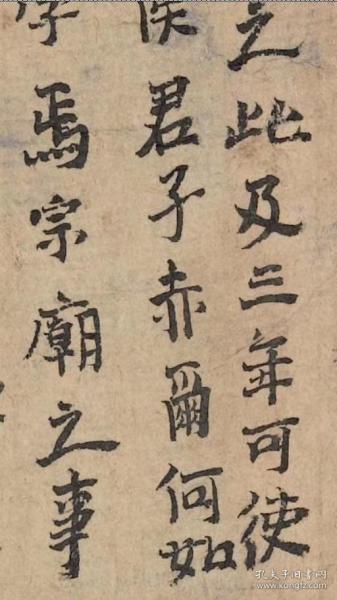 之此及三年可使
俟君子赤爾何如
學焉宗廟之事
孔夫子旧书网
www.kongfz.com